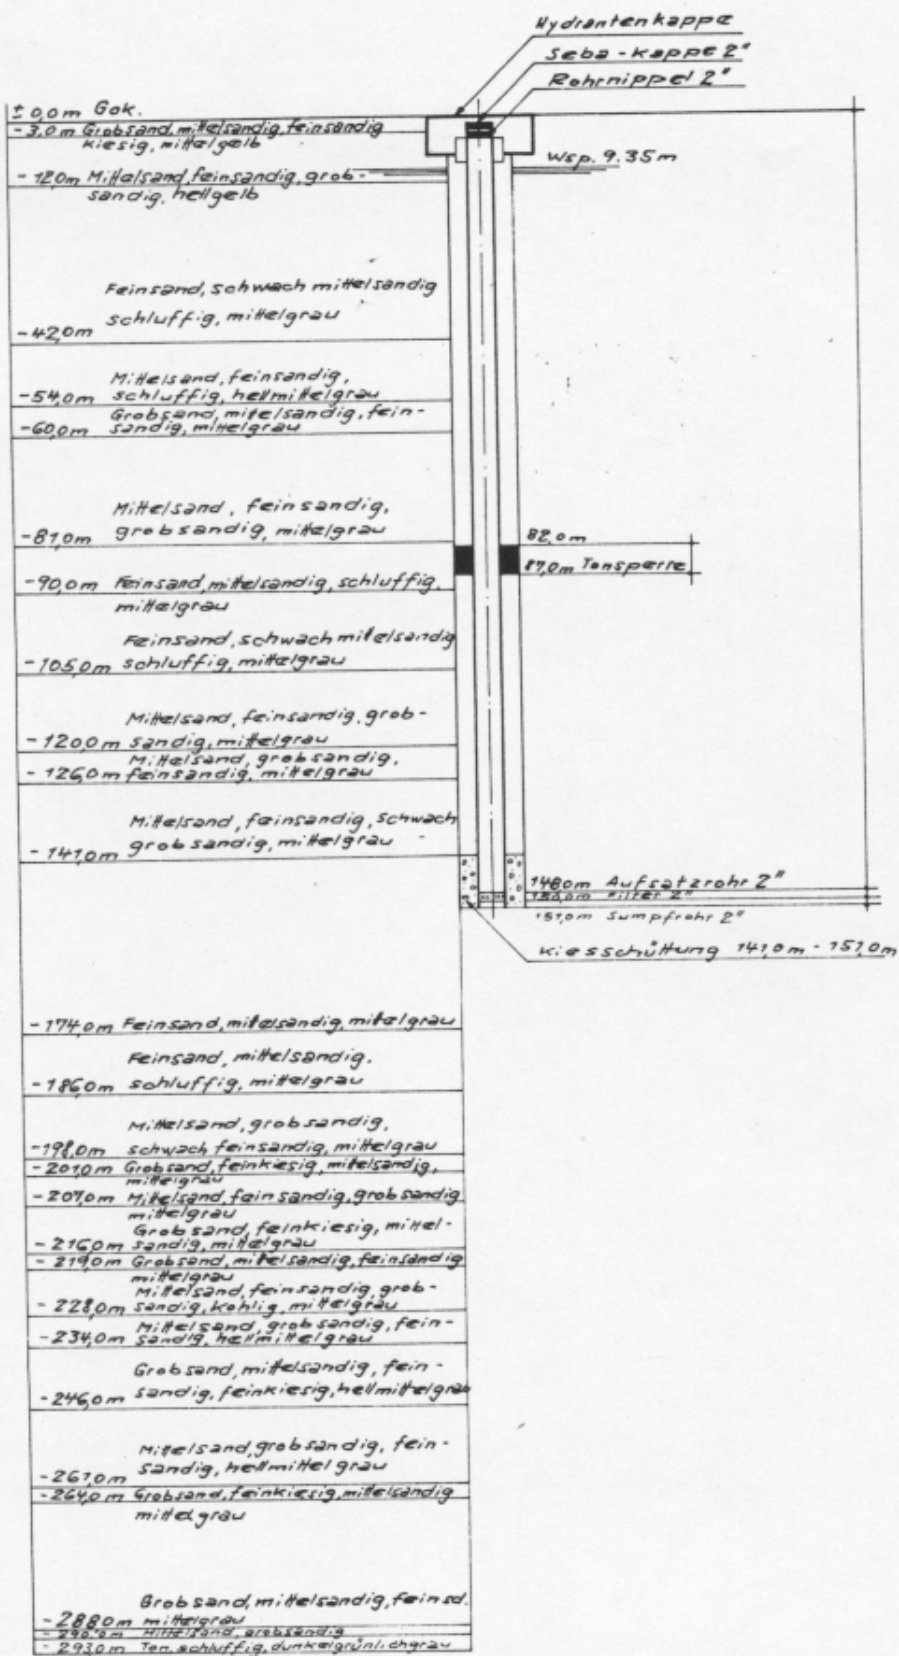 Hydrantenkappe
Seba-Kappe 2"
Rohrnippel 2"
± 0,0m Gok.
-3,0m Grobsand, mittelsandig, feinsandig
kiesig, mittelgelb
Wsp. 9.35m
-12,0m Mittelsand, feinsandig, grob-
sandig, hellgelb
Feinsand, schwach mittelsandig
schluffig, mittelgrau
-42,0m
Mittelsand, feinsandig,
schluffig, hellmittelgrau
-54,0m
Grobsand, mittelsandig, fein-
-60,0m sandig, mittelgrau
Mittelsand, feinsandig,
grobsandig, mittelgrau
-81,0m
82,0m
87,0m Tonsperre
-90,0m Feinsand, mittelsandig, schluffig,
mittelgrau
Feinsand, schwach mittelsandig
-105,0m schluffig, mittelgrau
Mittelsand, feinsandig, grob-
-120,0m sandig, mittelgrau
Mittelsand, grobsandig,
-126,0m feinsandig, mittelgrau
Mittelsand, feinsandig, schwach
grobsandig, mittelgrau
-141,0m
148,0m Aufsatzrohr 2"
150,0m Filter 2"
151,0m Sumpfrohr 2"
Kiesschüttung 141,0m - 151,0m
-174,0m Feinsand, mittelsandig, mittelgrau
Feinsand, mittelsandig,
-186,0m schluffig, mittelgrau
Mittelsand, grobsandig,
-198,0m schwach feinsandig, mittelgrau
-201,0m Grobsand, feinkiesig, mittelsandig,
mittelgrau
-207,0m Mittelsand, feinsandig, grobsandig
mittelgrau
Grobsand, feinkiesig, mittel-
-216,0m sandig, mittelgrau
-219,0m Grobsand, mittelsandig, feinsandig
mittelgrau
Mittelsand, feinsandig, grob-
-228,0m sandig, kohlig, mittelgrau
Mittelsand, grobsandig, fein-
-234,0m sandig, hellmittelgrau
Grobsand, mittelsandig, fein-
-246,0m sandig, feinkiesig, hellmittelgrau
Mittelsand, grobsandig, fein-
sandig, hellmittelgrau
-261,0m
-264,0m Grobsand, feinkiesig, mittelsandig
mittelgrau
Grobsand, mittelsandig, feinsd.
-288,0m mittelgrau
-290,0m Mittelsand, grobsandig
-293,0m Ton, schluffig, dunkelgrünlichgrau